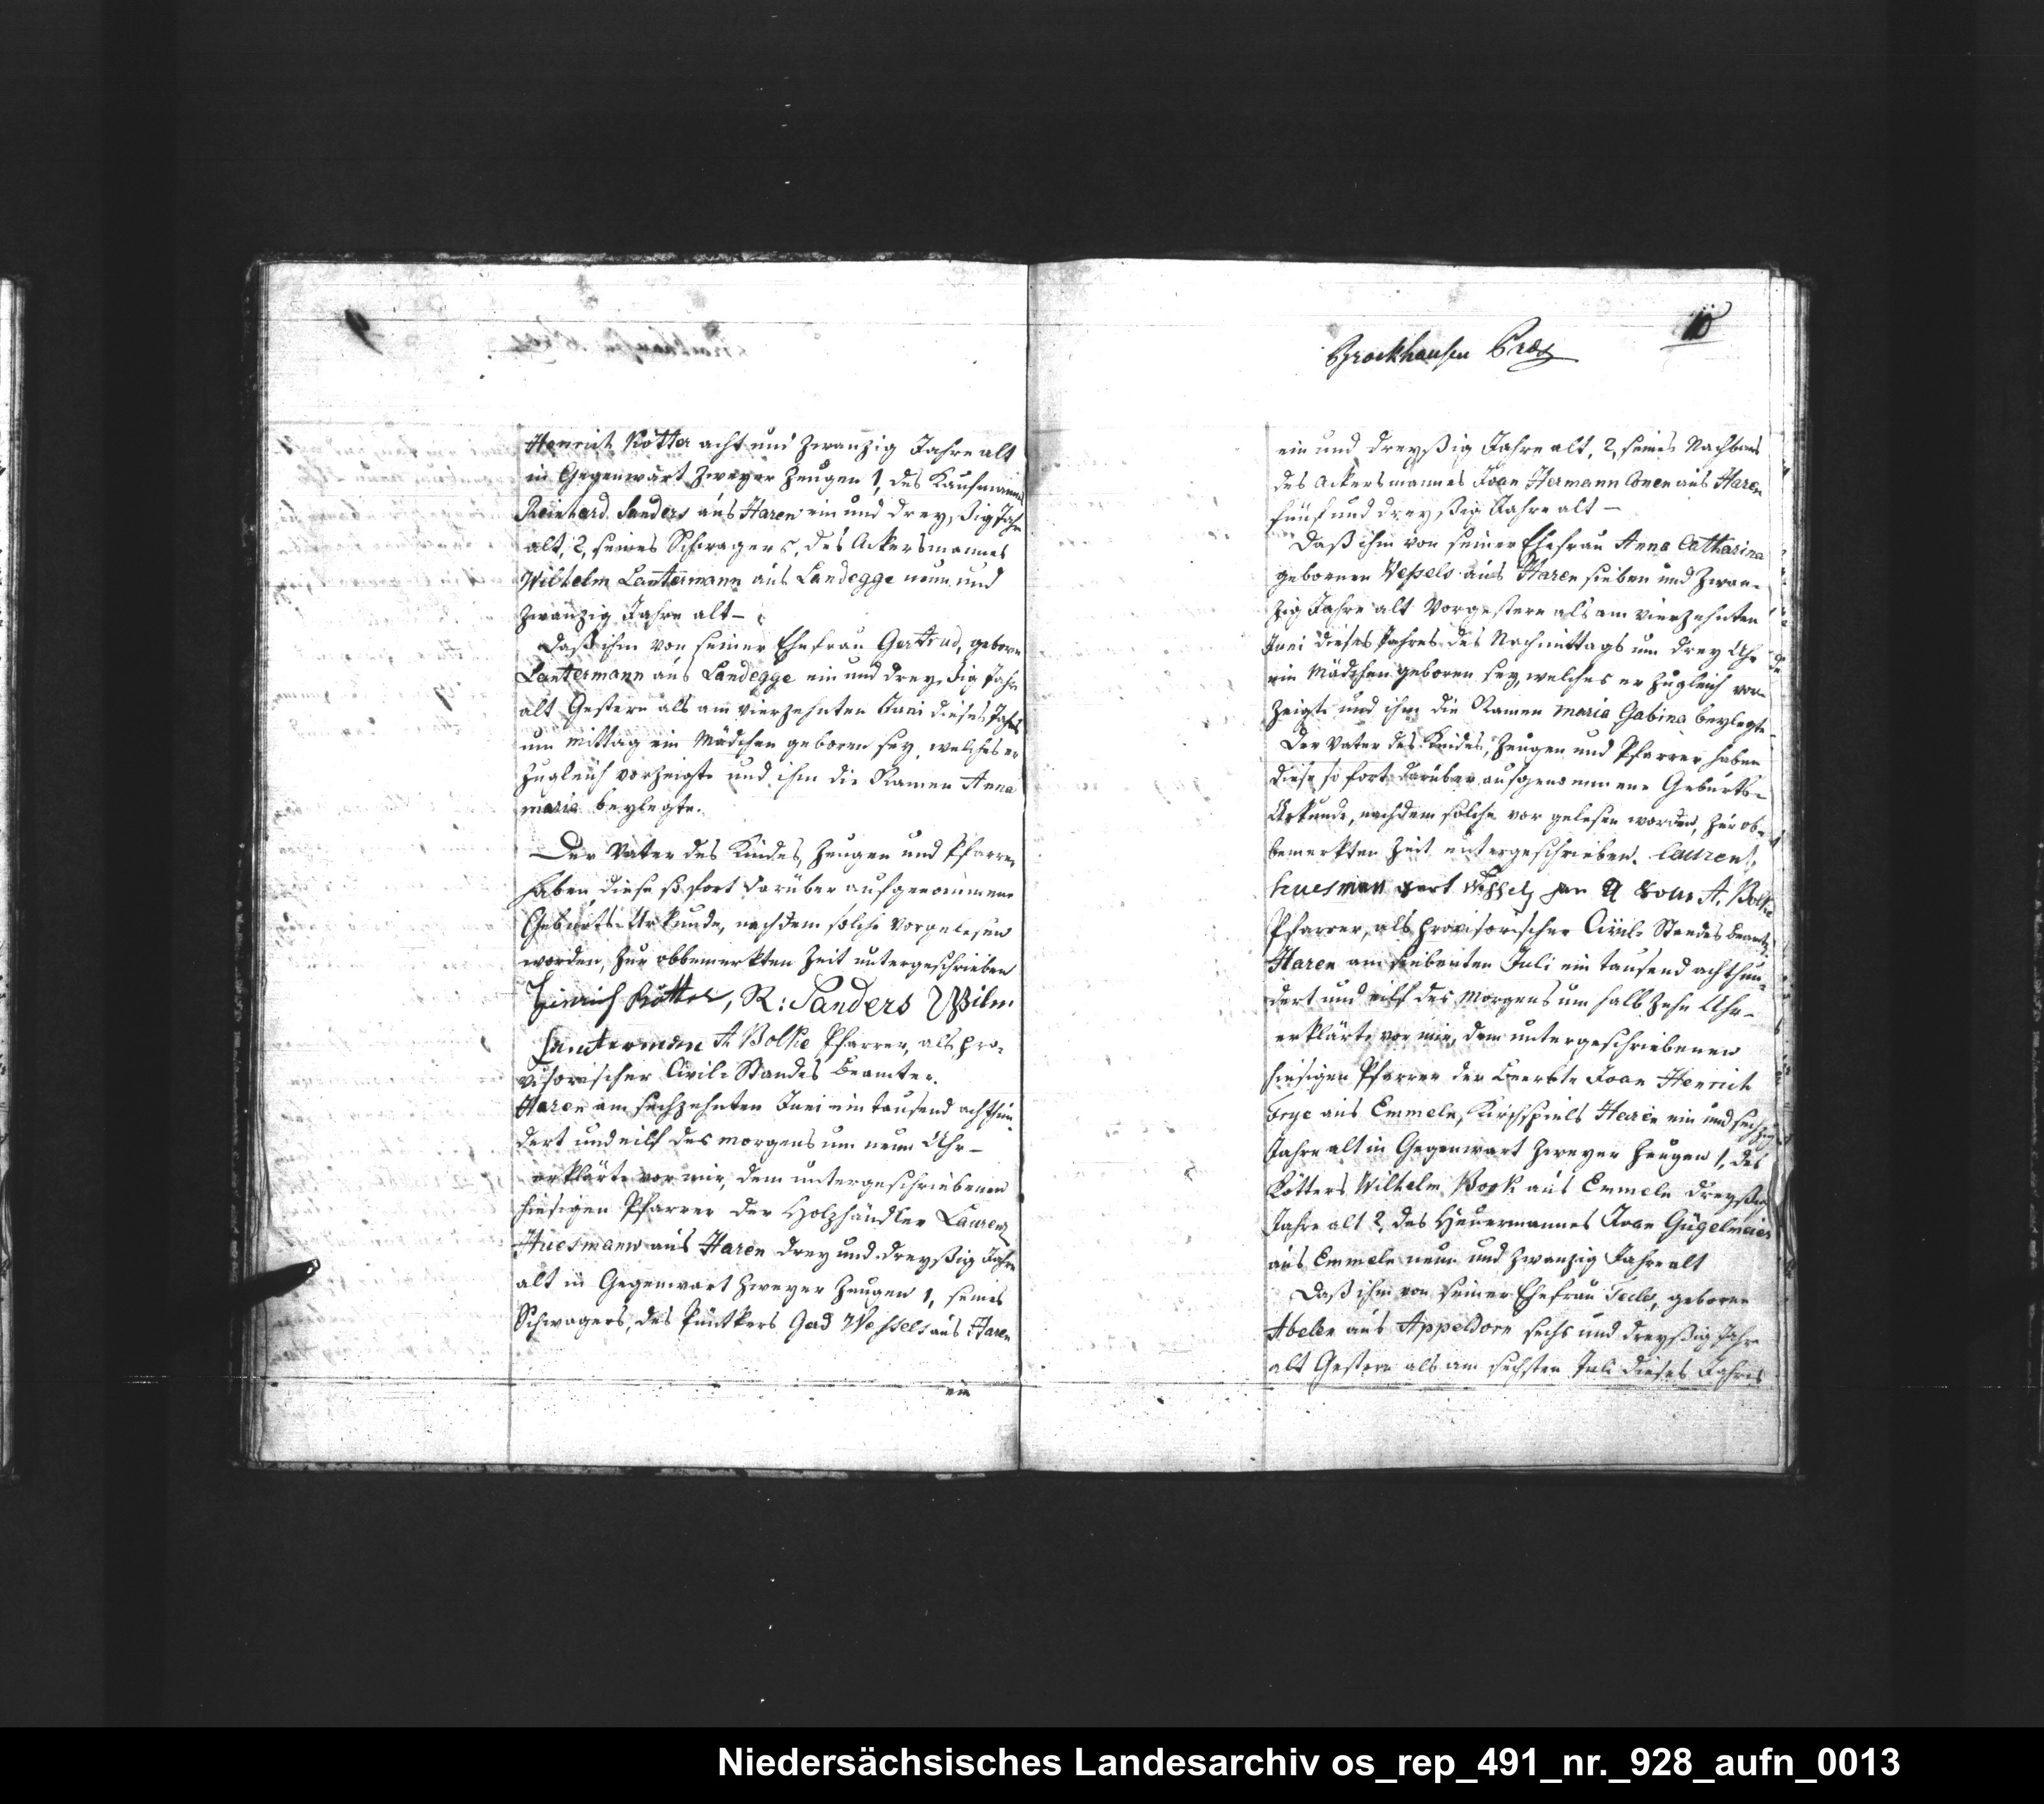 Henrich Kötter acht und zwanzig Jahre alt
in Gegenwart zweyer Zeugen 1, des Kaufmanns
Reinhard Sanders aus Haren ein und dreyßig Jahr
alt, 2, seines Schwagers, des Ackersmannes
Wilhelm Lantermann aus Landegge neun und
zwanzig Jahre alt –
Daß ihm von seiner Ehefrau Gertrud, geborne
Lantermann aus Landegge ein und dreyßig Jahre
alt Gestern als am vierzehnten Juni dieses Jahres
um Mittag ein Mädchen geboren sey, welches er
zugleich vorzeigte und ihm die Namen Anna
maria beylegte.
Der Vater des Kindes, Zeugen und Pfarrer
haben diese so fort darüber aufgenommene
Geburts-Urkunde, nachdem solche vorgelesen
worden, zur obbemerkten Zeit unterschrieben
Hinrich Kötter, R: Sanders Wilm
Lanterman A Bolke Pfarrer, als pro-
visorischer Civil-Standes Beamter.
Haren am sechzehnten Juni ein tausend achthun
dert und eilf des morgens um neun Uhr –
erklärte vor mir, dem untergeschriebenen
hiesigen Pfarrer der Holzhändler Laurenz
Huesmann aus Haren drey und dreyßig Jahre
alt in Gegenwart zweyer Zeugen 1, seines
Schwagers, des Püntkers Gerd Wessels aus Haren
ein
10
Brockhausen
ein und dreyßig Jahre alt, 2, seines Nachbars
des Ackersmannes Joan Hermann Conen aus Haren
fünf und dreyßig Jahre alt –
Daß ihm von seiner Ehefrau Anna Catharina
gebornen Weßels aus Haren sieben und zwan-
zig Jahre alt Vorgestern als am vierzehnten
Juni dieses Jahres des Nachmittags um drey Uhr
ein Mädchen geboren sey, welches er zugleich vor-
zeigte und ihm die Namen maria Gabina beylegte
Der Vater des Kindes, Zeugen und Pfarrer haben
diese so fort darüber aufgenommene Geburts-
Urkunde, nachdem solche vor gelesen worden, zur ob-
bemerkten Zeit untergeschrieben. laurens
huesman A. Bolke
Pfarrer, als provisorischer Civil-Standes Beamter.
Haren am siebenten Juli ein tausend achthun-
dert und eilf des Morgens um halb zehn Uhr –
erklärte vor mir, dem untergeschriebenen
hiesigen Pfarrer der Beerbte Joan Henrich
Frye aus Emmeln, Kirchspiels Haren ein und sechzig
Jahre alt in Gegenwart zweyer Zeugen 1, des
Kötters Wilhelm Book aus Emmeln dreyßig
Jahre alt 2, des Heuermannes Joan Gügelmeier
aus Emmeln neun und zwanzig Jahre alt
Daß ihm von seiner Ehefrau geborne
Abeln aus Appeldorn sechs und dreyßig Jahre
alt Gestern als am sechsten Juli dieses Jahres
Niedersächsisches Landesarchiv os_rep_491_nr._928_aufn_0013